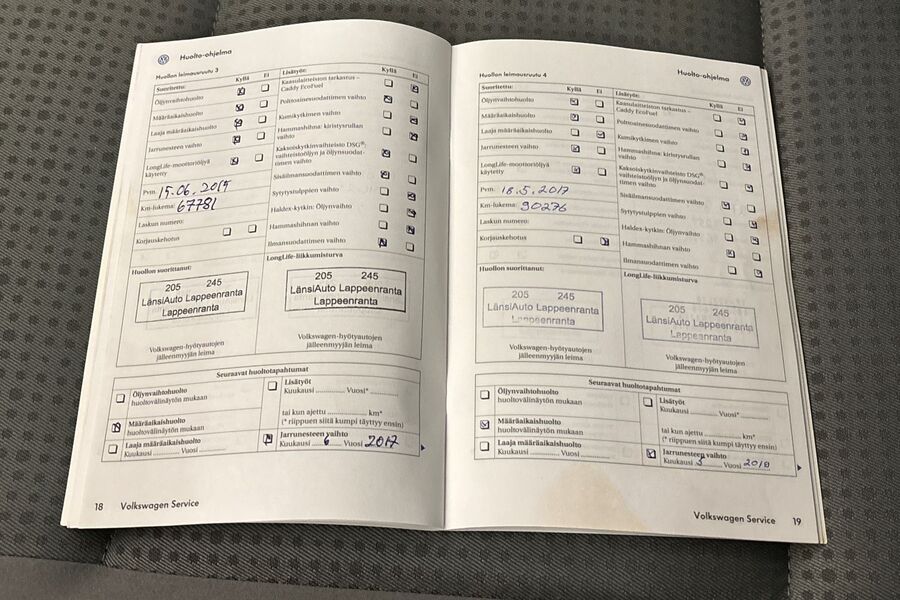 Huolto-ohjelma
Huollon leimausruutu 3
Suoritettu: Kyllä Ei
Öljynvaihtohuolto
Määräaikaishuolto
Laaja määräaikaishuolto
Jarrunesteen vaihto
LongLife-moottoriöljyä
käytetty
Pvm.
Km-lukema: 67781
Laskun numero:
Korjauskehotus
Lisätyöt: Kyllä Ei
Kaasulaitteiston tarkastus –
Caddy EcoFuel
Polttoainesuodattimen vaihto
Kumikytkimen vaihto
Hammashihna: kiristysrullan
vaihto
Kaksoiskytkinvaihteisto DSG®:
vaihteistoöljyn ja öljynsuodat-
timen vaihto
Sisäilmansuodattimen vaihto
Sytytystulppien vaihto
Haldex-kytkin: Öljynvaihto
Hammashihnan vaihto
Ilmansuodattimen vaihto
Huollon suorittanut:
205 245
LänsiAuto Lappeenranta
Lappeenranta
Volkswagen-hyötyautojen
jälleenmyyjän leima
LongLife-liikkumisturva
205 245
LänsiAuto Lappeenranta
Lappeenranta
Volkswagen-hyötyautojen
jälleenmyyjän leima
Seuraavat huoltotapahtumat
Öljynvaihtohuolto
huoltovälinäytön mukaan
Määräaikaishuolto
huoltovälinäytön mukaan
Laaja määräaikaishuolto
Kuukausi ........ Vuosi ........
Lisätyöt
Kuukausi ........ Vuosi*
tai kun ajettu ........ km*
(* riippuen siitä kumpi täyttyy ensin)
Jarrunesteen vaihto
Kuukausi 6 Vuosi 2017
18 Volkswagen Service
Huolto-ohjelma
Huollon leimausruutu 4
Suoritettu: Kyllä Ei
Öljynvaihtohuolto
Määräaikaishuolto
Laaja määräaikaishuolto
Jarrunesteen vaihto
LongLife-moottoriöljyä
käytetty
Pvm. 18.5.2017
Km-lukema: 90276
Laskun numero:
Korjauskehotus
Lisätyöt: Kyllä Ei
Kaasulaitteiston tarkastus –
Caddy EcoFuel
Polttoainesuodattimen vaihto
Kumikytkimen vaihto
Hammashihna: kiristysrullan
vaihto
Kaksoiskytkinvaihteisto DSG®:
vaihteistoöljyn ja öljynsuodat-
timen vaihto
Sisäilmansuodattimen vaihto
Sytytystulppien vaihto
Haldex-kytkin: Öljynvaihto
Hammashihnan vaihto
Ilmansuodattimen vaihto
Huollon suorittanut:
205 245
LänsiAuto Lappeenranta
Lappeenranta
Volkswagen-hyötyautojen
jälleenmyyjän leima
LongLife-liikkumisturva
205 245
LänsiAuto Lappeenranta
Lappeenranta
Volkswagen-hyötyautojen
jälleenmyyjän leima
Seuraavat huoltotapahtumat
Öljynvaihtohuolto
huoltovälinäytön mukaan
Määräaikaishuolto
huoltovälinäytön mukaan
Laaja määräaikaishuolto
Kuukausi ........ Vuosi ........
Lisätyöt
Kuukausi ........ Vuosi*
tai kun ajettu ........ km*
(* riippuen siitä kumpi täyttyy ensin)
Jarrunesteen vaihto
Kuukausi 5 Vuosi 2018
Volkswagen Service 19